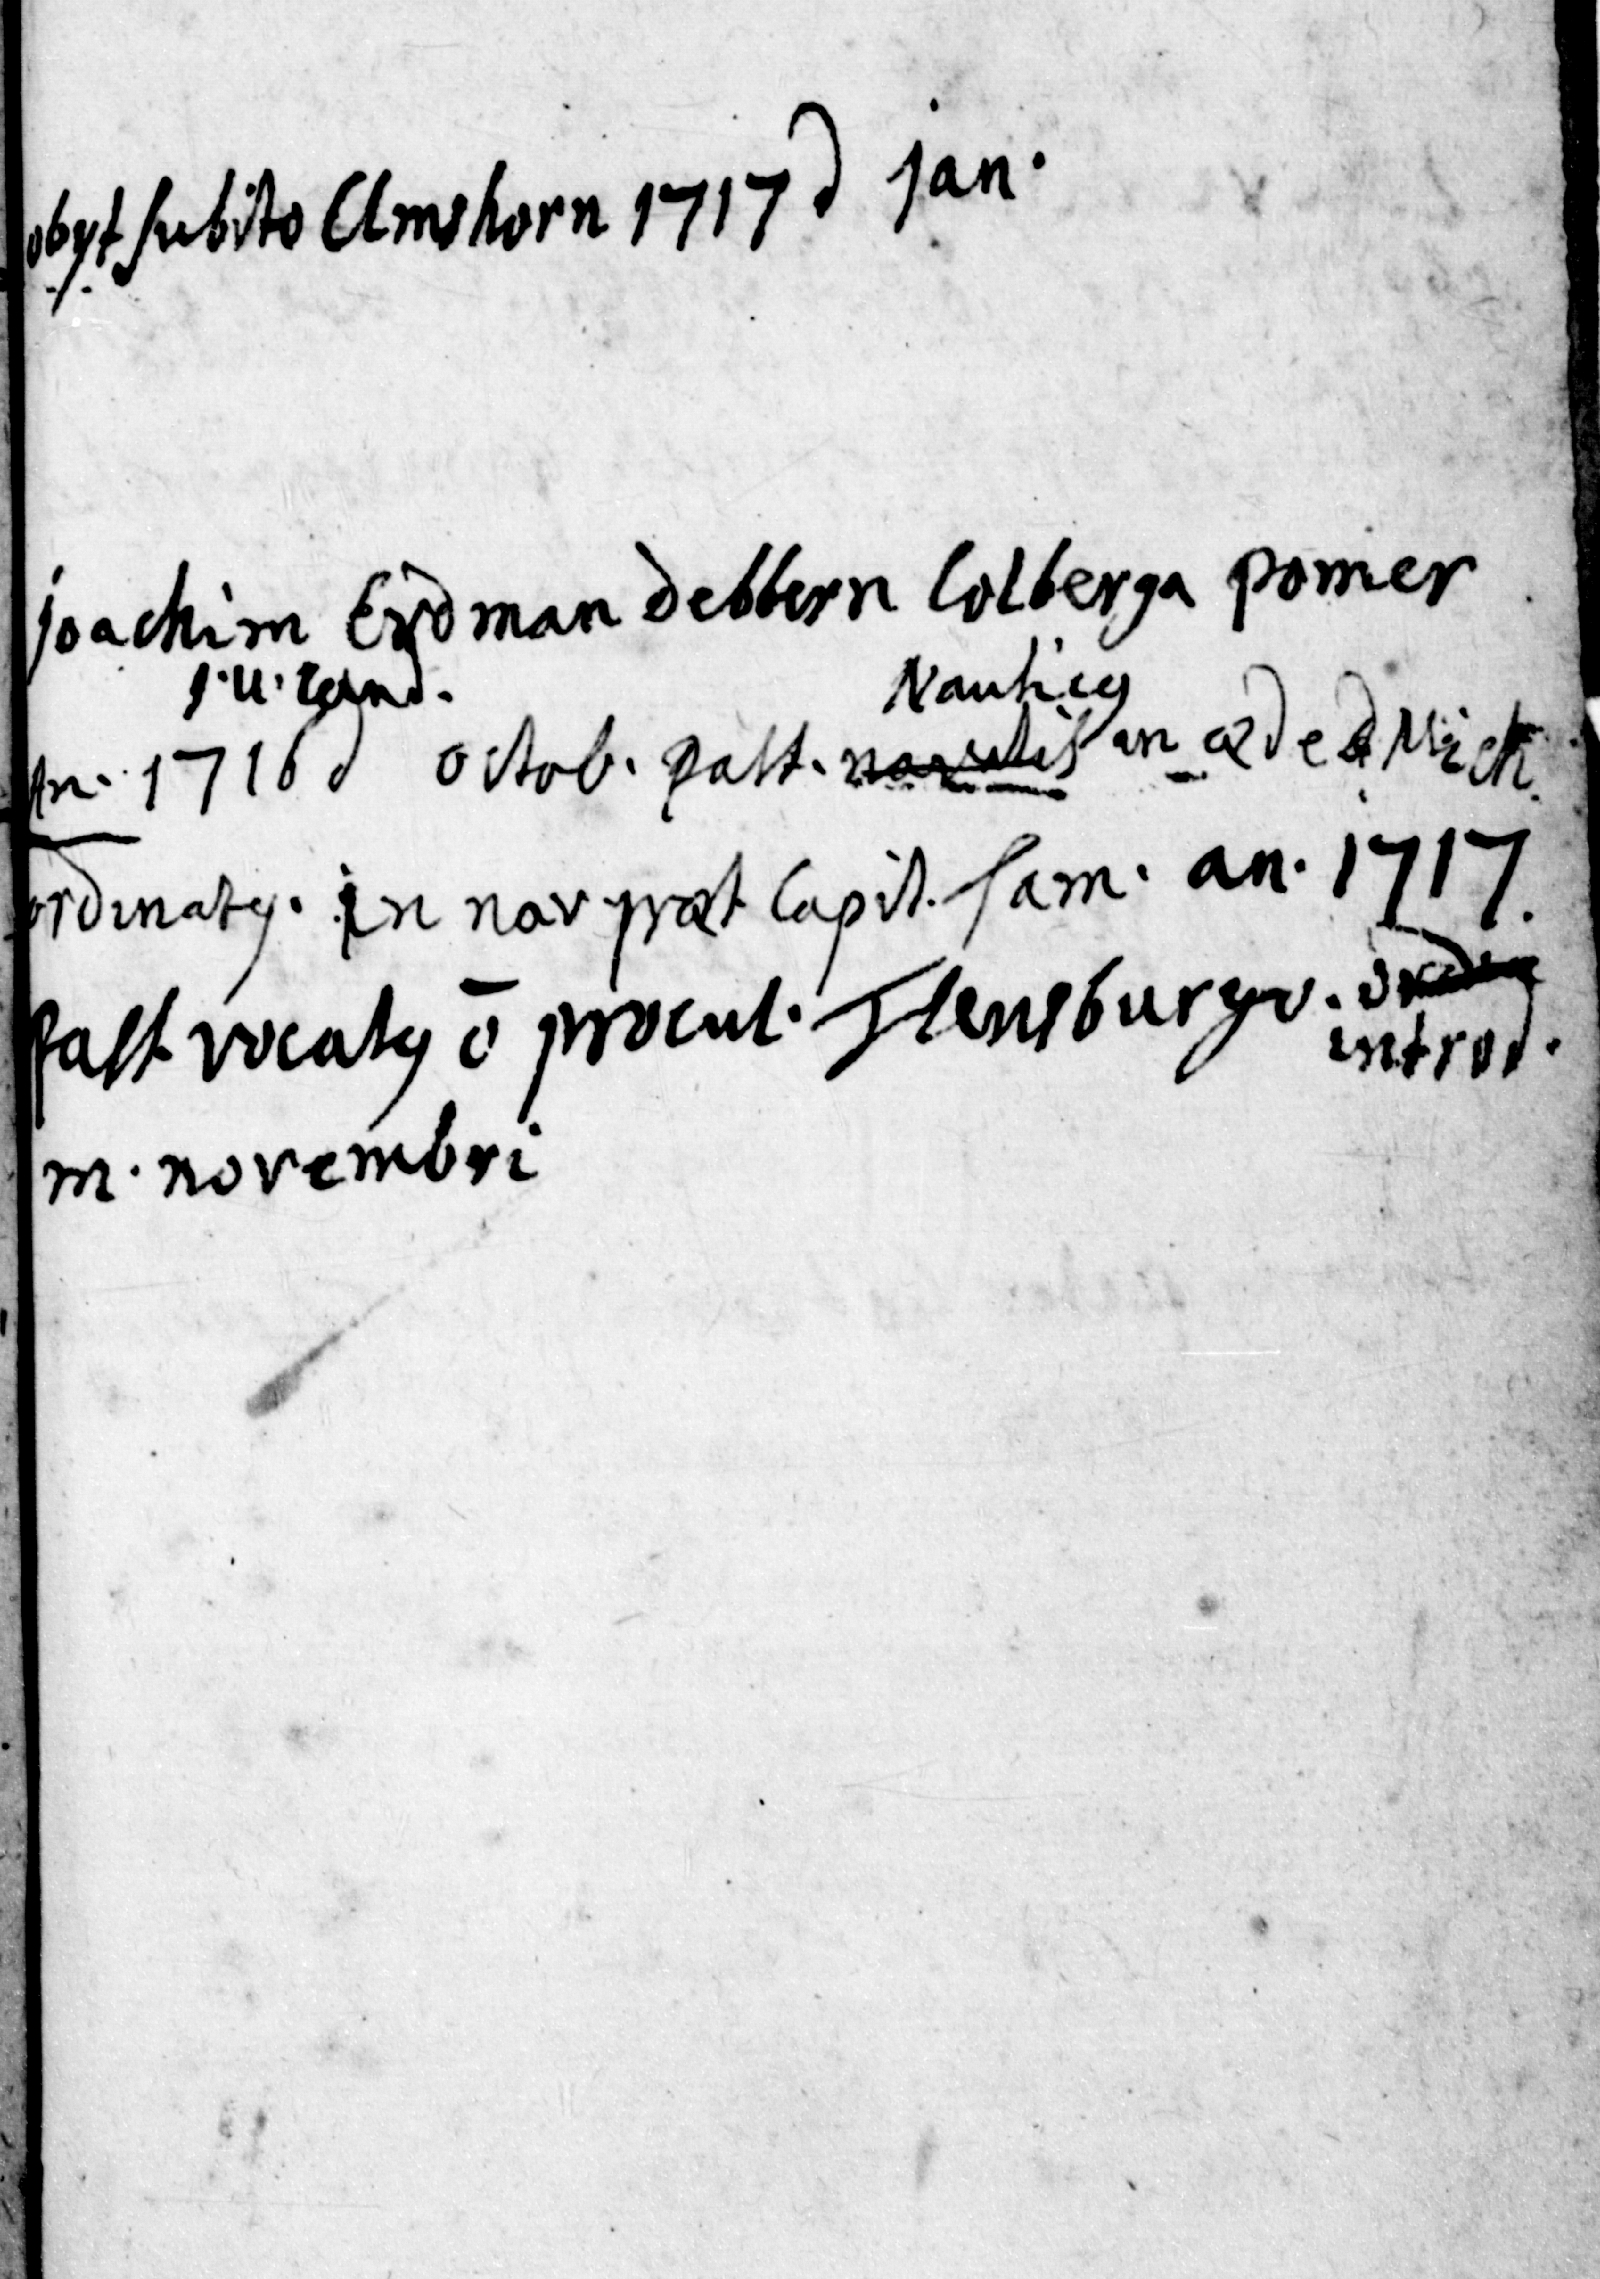 obyt subito Elmshorn 1717 d jan.
joachim Erdman debbern Colberga pomer
Nauticus
An. 1716 d octob. past. navalis in æde d Mich.
ordinatus. in nav præt Capit. Sam. an. 1717.
past vocatus ō procul. Flensburgo. ordin
introd.
m. novembri